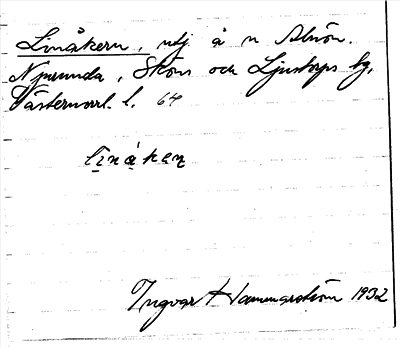 Linåkern, utj å n Alnön.
Njurunda, Sköns och Ljustorps tg,
Västernorrl. l. 64
li̠nå̀ke̠ṇ
Ingvar Hammarström 1932